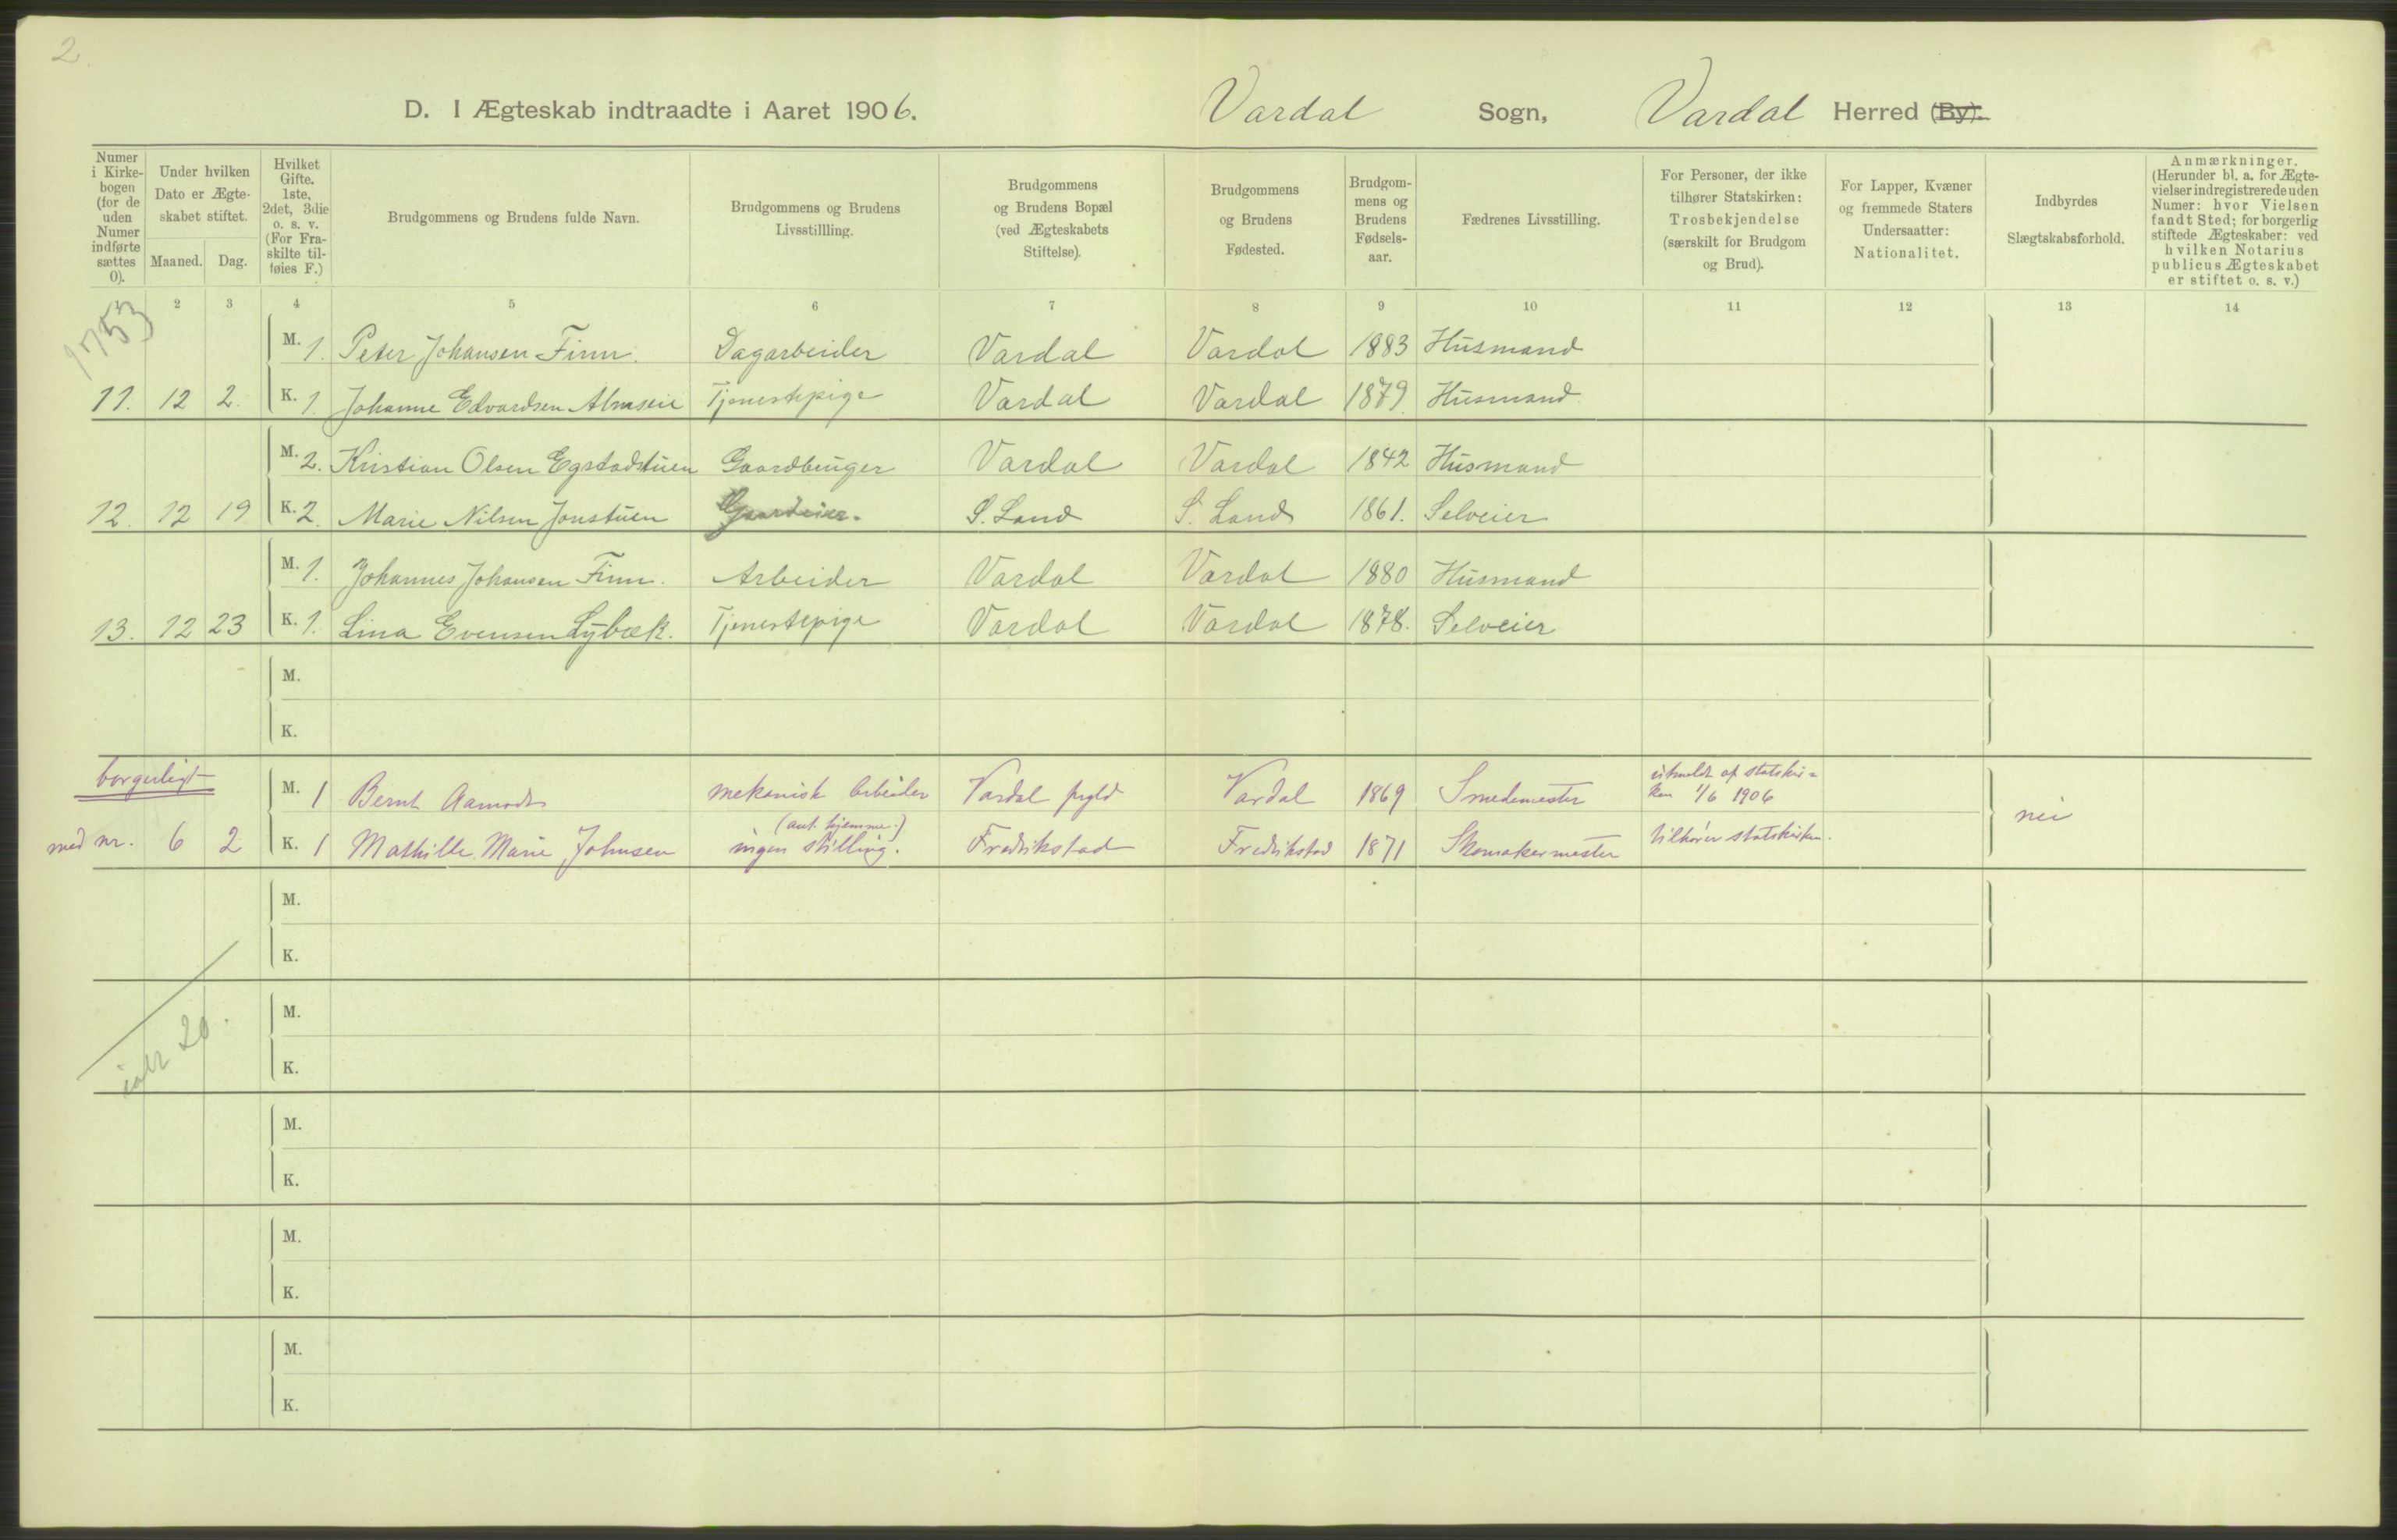 2
D. I Ægteskab indtraadte i Aaret 1906. Vardal Sogn, Vardal Herred (By).
Numer i Kirke-bogen (for de uden Numer indførte sættes 0).
Under hvilken Dato er Ægte-skabet stiftet.
Maaned. Dag.
Hvilket Gifte. 1ste, 2det, 3die o. s. v. (For Fra-skilte til-føies F.)
Brudgommens og Brudens fulde Navn.
Brudgommens og Brudens Livsstillling.
Brudgommens og Brudens Bopæl (ved Ægteskabets Stiftelse).
Brudgommens og Brudens Fødested.
Brudgom-mens og Brudens Fødsels-aar.
Fædrenes Livsstilling.
For Personer, der ikke tilhører Statskirken: Trosbekjendelse (særskilt for Brudgom og Brud).
For Lapper, Kvæner og fremmede Staters Undersaatter: Nationalitet.
Indbyrdes Slægtskabsforhold.
Anmærkninger. (Herunder bl. a. for Ægte-vielser indregistrerede uden Numer: hvor Vielsen fandt Sted; for borgerlig stiftede Ægteskaber: ved hvilken Notarius publicus Ægteskabet er stiftet o. s. v.)
2 3 4 5 6 7 8 9 10 11 12 13 14
M. 1. Peter Johansen Finn. Dagarbeider Vardal Vardal 1883 Husmand
11. 12 2. K. 1. Johanne Edvardsen Almseie Tjenestepige Vardal Vardal 1879. Husmand.
M. 2. Kristian Olsen Egstadstuen Gaardbruger Vardal Vardal 1842 Husmand
12. 12 19 K. 2. Marie Nilsen Jonstuen Gaardeier. S. Land S. Land 1861. Selveier
M. 1. Johannes Johansen Finn. Arbeider Vardal Vardal 1880 Husmand
13. 12 23 K. 1. Lina Evensen Lybæk. Tjenestepige Vardal Vardal 1878. Selveier
M.
K.
borgerligt M. 1 Bernt Aamodt mekanisk arbeider Vardal prgld Vardal 1869 Smedemester utmeldt af statskir=
ken 1/6 1906
nei
med nr. 6 2 K. 1 Mathilde Marie Johnsen (ant. hjemme.)
ingen stilling. Fredrikstad Fredrikstad 1871 Skomakermester tilhører statskirken.
M.
K.
M.
ialt 20.
K.
M.
K.
M.
K.
M.
K.